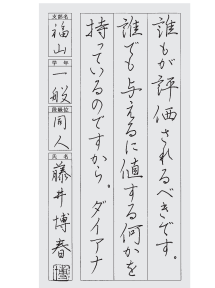 誰もが評価されるべきです。
誰でも与えるに値する何かを
持っているのですから。ダイアナ
支部名 福山
学年 一般
段級位 同人
氏名 藤井博春